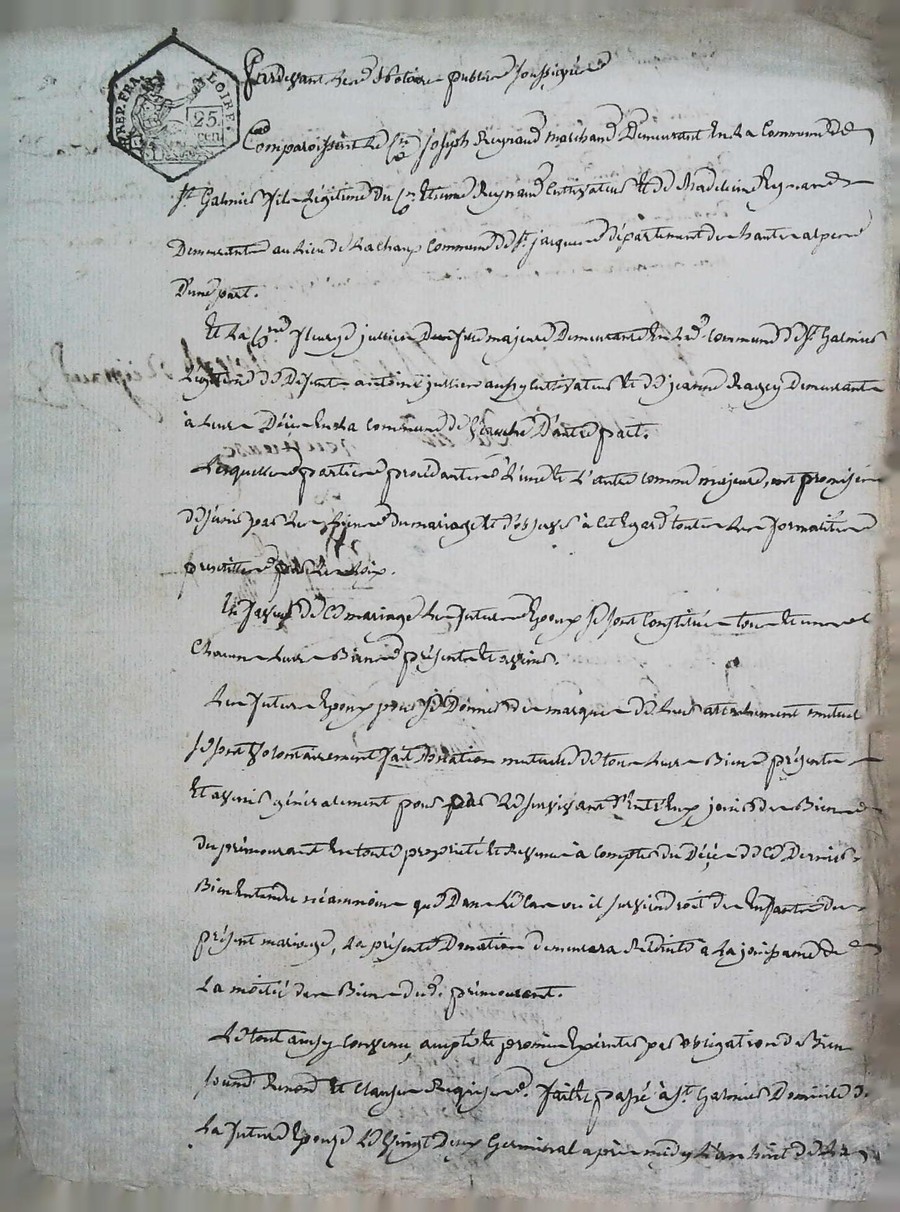 REP. FRA. LOIRE. 25. cen
Pardevant Le Notaire public soussigné
Comparoissent Le Cen Joseph Reynaud marchand Demeurant En La Commune de
St Galmier fils Légitime du Cen Etienne Reynaud Cultivateur Et de Madeleine
Demeurants au Lieu de commune de St jacques département des hautes alpes
D'une part.
Et La Cne fleurye jullien majeure Demeurante En Lad. commune de St Galmier
Légitime de Défunt antoine jullien aussy Cultivateur Et de jeanne Ragey Demeurante
à Décès En La commune de D'autre part.
Lesquelles parties procédantes L'une Et L'autre comme majeure, ont promis
s'unir par Les Liens du mariage Et d'observer à Cet Egard toutes Les formalités
prescrittes par Les Loix.
En faveur de Ce mariage Les futurs Epoux se sont Constitués tous Et un
Chacun Leurs Biens présents Et avenir.
Les futurs Epoux pour se Donner des marques de Leur attachement mutuel
se sont volontairement fait Donation mutuelle de tous Leurs Biens présents
Et avenir généralement pour par Le survivant D'entr'Eux jouir des Biens
du prémourant En toute propriété Et Revenu à compter du Décès de Ce Dernier
Bien Entendu néanmoins que Dans Le Cas ou il surviendroit des Enfants du
présent mariage, La présente Donation demeurera Réduite à La jouissance de
La moitié des Biens dud. prémourant.
Le tout ainsy convenu, accepté Et promis Exécuter par obligation de Biens
soumis Renon. Et Clauses Requises. fait Et passé à St Galmier Domicile de
La future Epouse Le vingt Deux Germinal après midy L'an huit de La